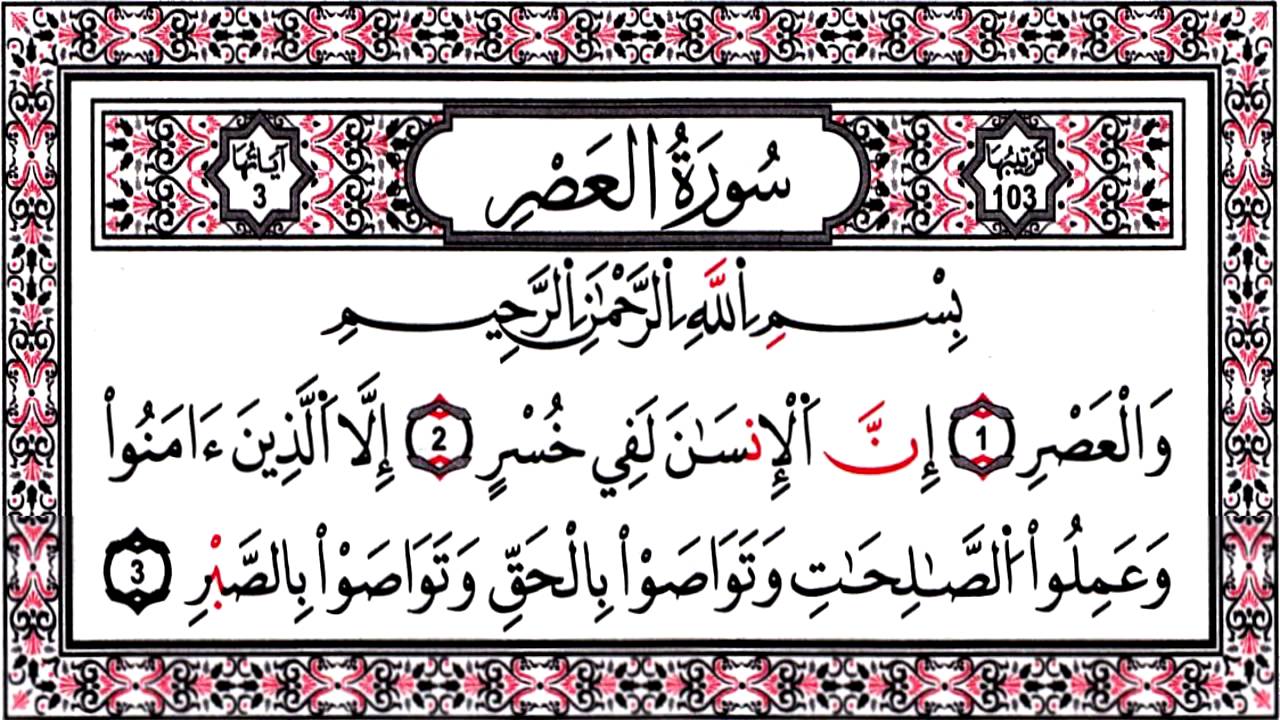 ترتيبها 103
سُورَةُ العَصْرِ
آياتها 3
بِسْمِ اِ۬للَّهِ اِ۬لرَّحْمَٰنِ اِ۬لرَّحِيمِ
وَالْعَصْرِ 1 إِنَّ اَ۬لْإِنسَٰنَ لَفِي خُسْرٍ 2 إِلَّا اَ۬لَّذِينَ ءَامَنُواْ
وَعَمِلُواْ اُ۬لصَّٰلِحَٰتِ وَتَوَاصَوْاْ بِالْحَقِّ وَتَوَاصَوْاْ بِالصَّبْرِ 3